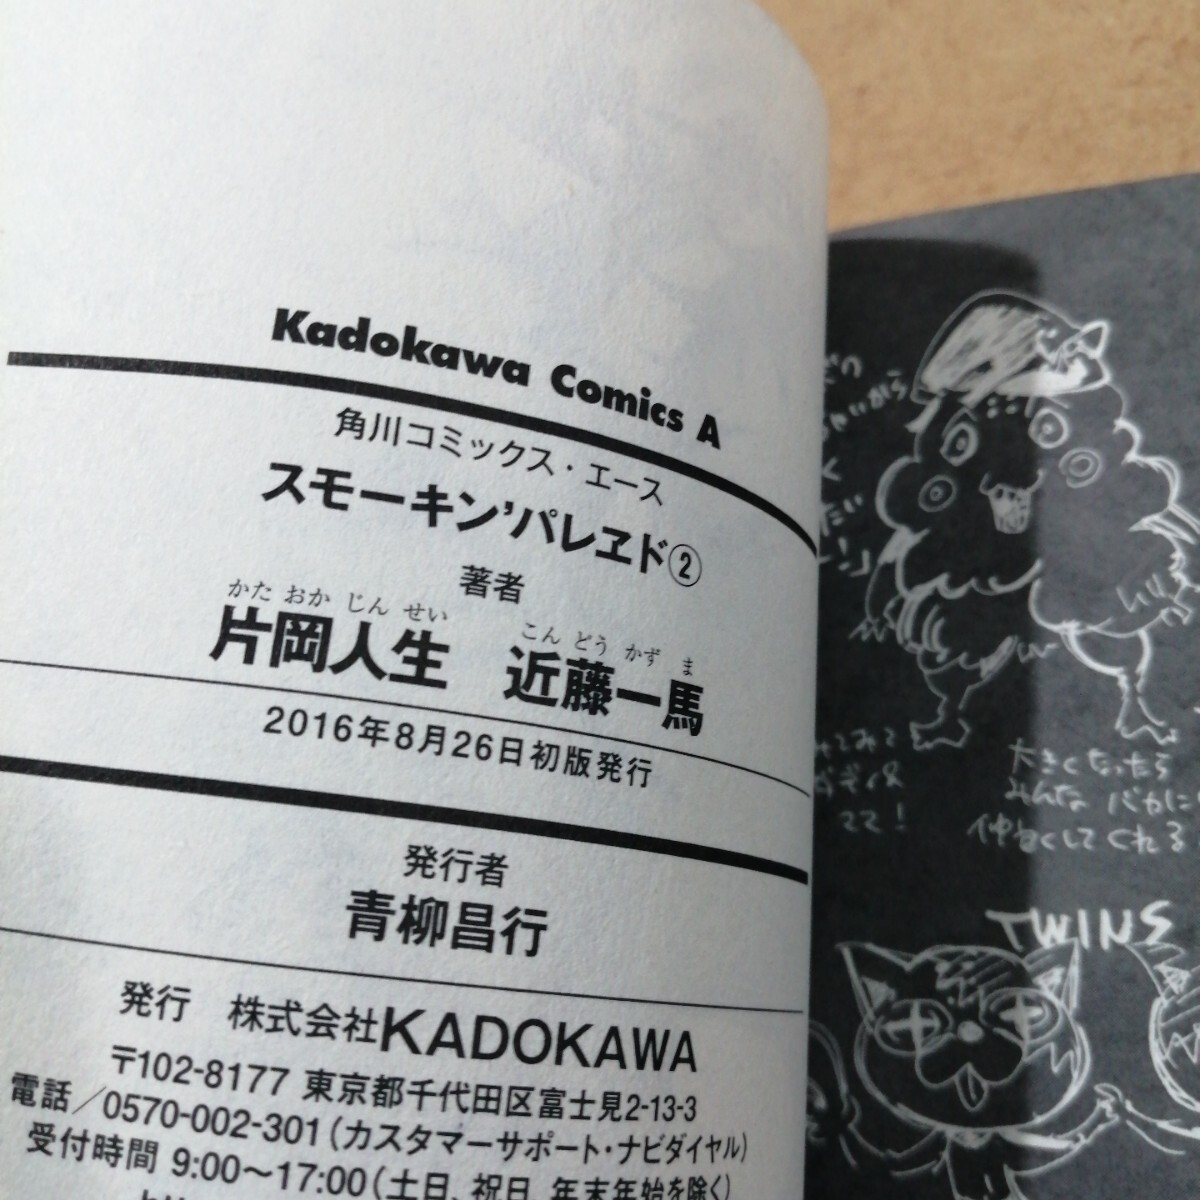 Kadokawa Comics A
角川コミックス・エース
スモーキン'パレヱド②
著者
かた おか じん せい こん どう かず ま
片岡人生 近藤一馬
2016年8月26日初版発行
発行者
青柳昌行
発行 株式会社KADOKAWA
〒102-8177 東京都千代田区富士見2-13-3
電話/0570-002-301(カスタマーサポート・ナビダイヤル)
受付時間 9:00~17:00(土日、祝日、年末年始を除く)
大きくなったら
みんな バカに
仲良くしてくれる
TWINS